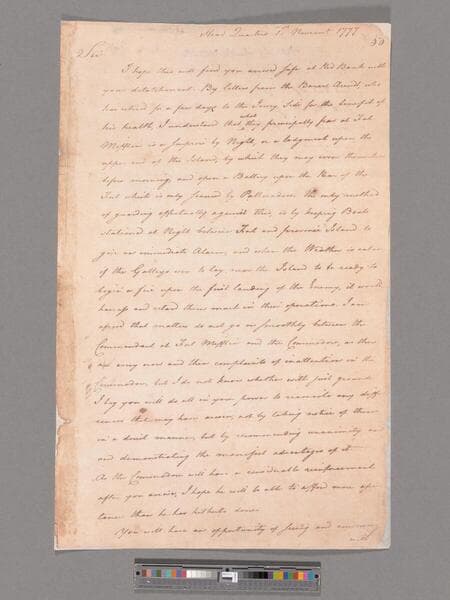 Head Quarters 5th Novemr 1777
50
Sir
I hope this will find you arrived safe at Red Bank with
your detatchment. By letters from the Baron Arendt, who
has retired for a few days to the Jersey Side for the benefit of
his health, I understand that what they principally fear at Fort
Mifflin is a surprise by Night, or a lodgement upon the
upper end of the Island, by which they may cover themselves
before morning and open a Battery upon the Rear of the
Fort which is only secured by Pallisadoes. The only method
of guarding effectually against this, is by keeping Boats
stationed at Night between Fort and province Island to
give an immediate Alarm, and when the Weather is calm
if the Gallies were to lay near the Island to be ready to
begin a fire upon the first landing of the Enemy, it would
harrass and retard them much in their operations. I am
afraid that matters do not go on smoothly between the
Commandant at Fort Mifflin and the Commodore, as there
are every now and then complaints of inattention in the
Commodore, but I do not know whether with just grounds
I beg you will do all in your power to reconcile any diff-
erences that may have arisen, not by taking notice of them
in a direct manner, but by recommending unanimity
and demonstrating the manifest advantages of it
As the Commodore will have a considerable reinforcement
after you arrive, I hope he will be able to afford more assis-
tance than he has hitherto done.
You will have an opportunity of seeing and conversing
with